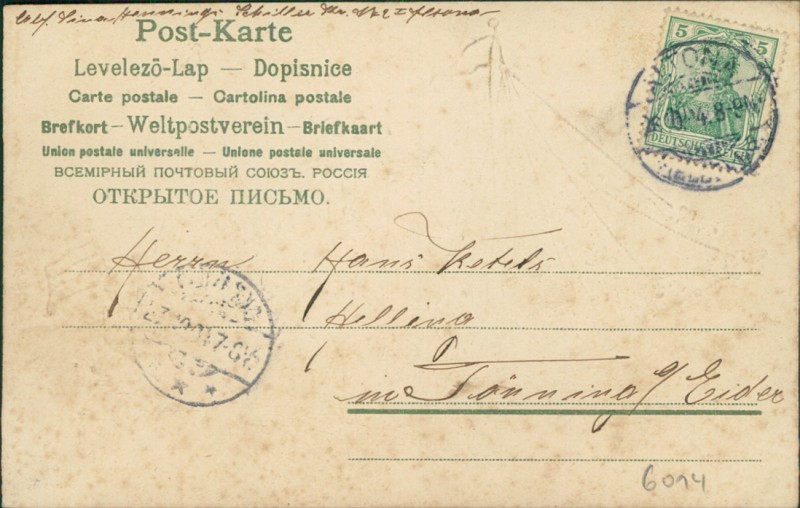 Schiller Altona
Post-Karte
Levelező-Lap — Dopisnice
Carte postale — Cartolina postale
Brefkort — Weltpostverein — Briefkaart
Union postale universelle — Unione postale universale
ВСЕМІРНЫЙ ПОЧТОВЫЙ СОЮЗЪ. РОССІЯ
ОТКРЫТОЕ ПИСЬМО.
5 5
DEUTSCHES REICH
ALTONA
4.8-9
Herrn Hans Ketels
Hellina
in Tönning a/ Eider
6014